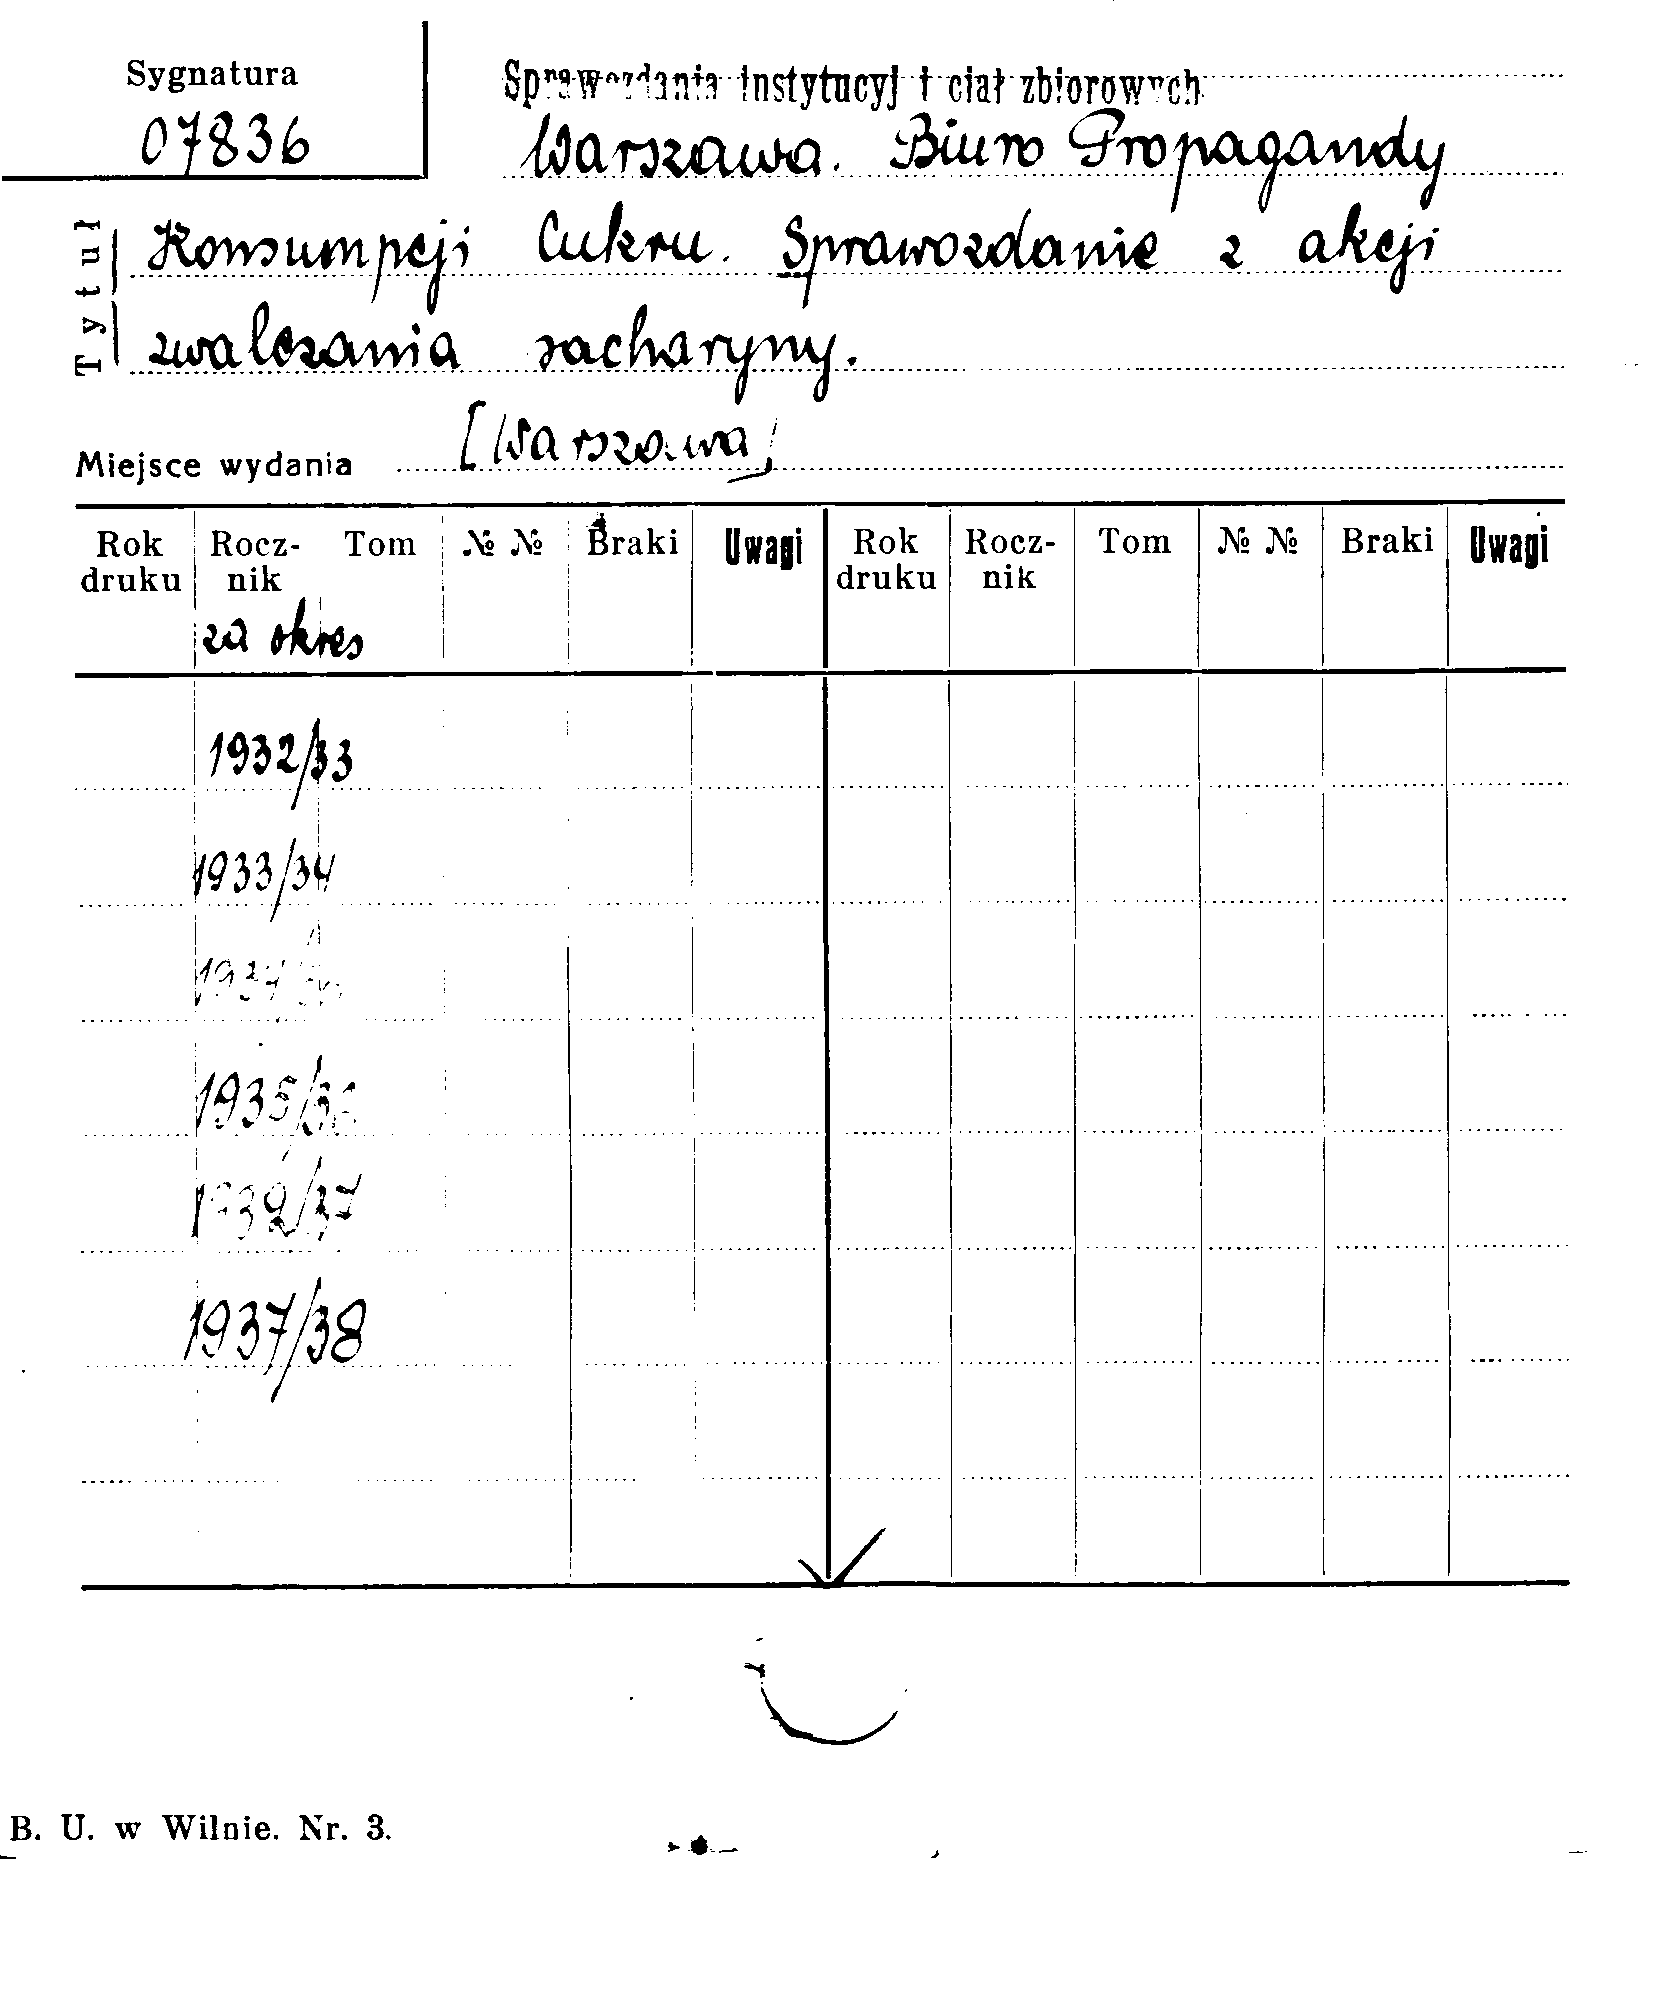 Sygnatura
07836
Sprawozdania instytucyj i ciał zbiorowych
Warszawa. Biuro Propagandy
Tytuł
Konsumpcji Cukru. Sprawozdanie z akcji
zwalczania sacharyny.
Miejsce wydania [Warszawa]
Rok druku Rocz-nik Tom №№ Braki Uwagi Rok druku Rocz-nik Tom №№ Braki Uwagi
za okres
1932/33
1933/34
1935/36
1937/38
B. U. w Wilnie. Nr. 3.